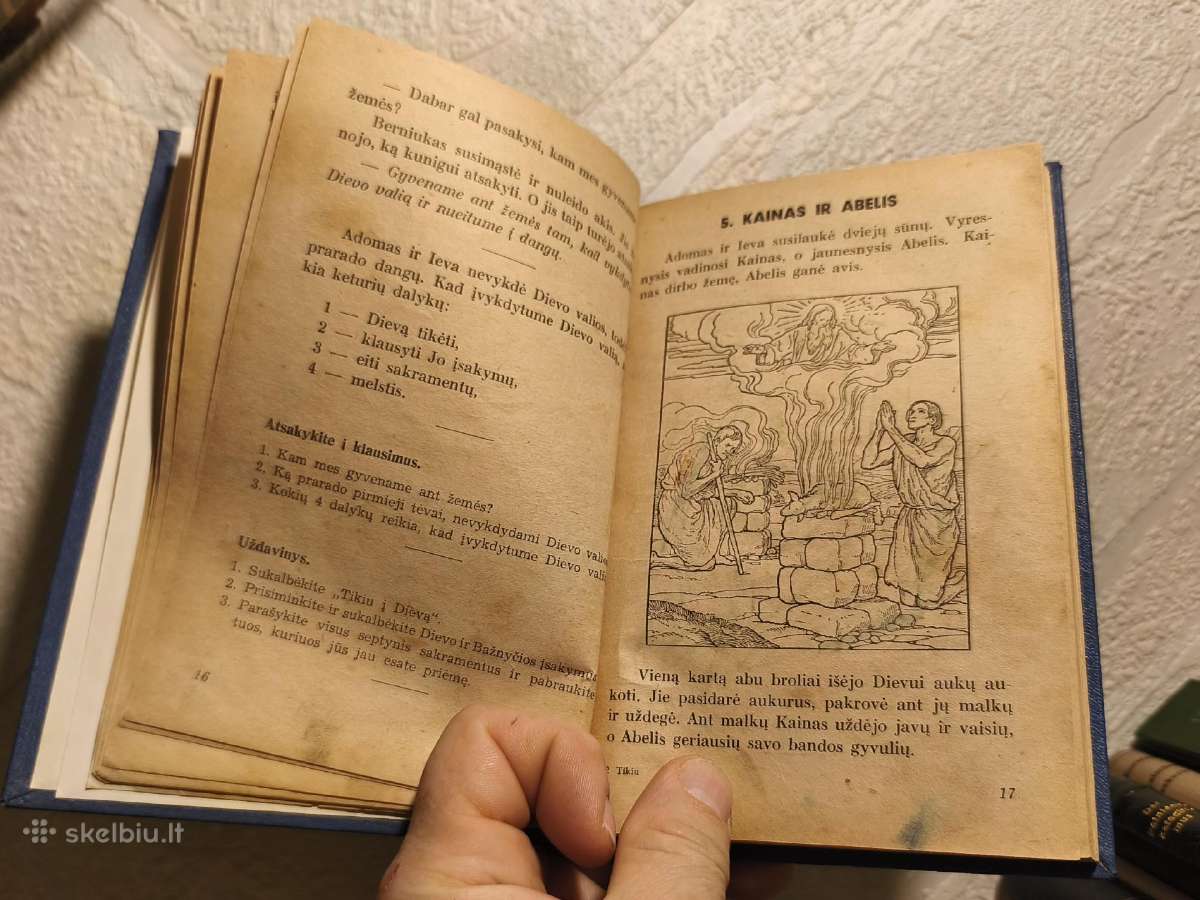 — Dabar gal pasakysi, kam mes gyvename
žemės?
Berniukas susimąstė ir nuleido akis.
nojo, ką kunigui atsakyti. O jis taip turėjo
— Gyvename ant žemės tam, kad
Dievo valią ir nueitume į dangų.
Adomas ir Ieva nevykdė Dievo valios,
prarado dangų. Kad įvykdytume Dievo valią,
kia keturių dalykų:
1 — Dievą tikėti,
2 — klausyti Jo įsakymų,
3 — eiti sakramentų,
4 — melstis.
Atsakykite į klausimus.
1. Kam mes gyvename ant žemės?
2. Ką prarado pirmieji tėvai, nevykdydami Dievo
3. Kokių 4 dalykų reikia, kad įvykdytume Dievo
Uždavinys.
1. Sukalbėkite „Tikiu į Dievą“.
2. Prisiminkite ir sukalbėkite Dievo ir Bažnyčios
3. Parašykite visus septynis sakramentus ir pabraukite
tuos, kuriuos jūs jau esate priėmę.
16
5. KAINAS IR ABELIS
Adomas ir Ieva susilaukė dviejų sūnų. Vyres-
nysis vadinosi Kainas, o jaunesnysis Abelis. Kai-
nas dirbo žemę, Abelis ganė avis.
Vieną kartą abu broliai išėjo Dievui aukų au-
koti. Jie pasidarė aukurus, pakrovė ant jų malkų
ir uždegė. Ant malkų Kainas uždėjo javų ir vaisių,
o Abelis geriausių savo bandos gyvulių.
2 Tikiu
17
skelbiu.lt